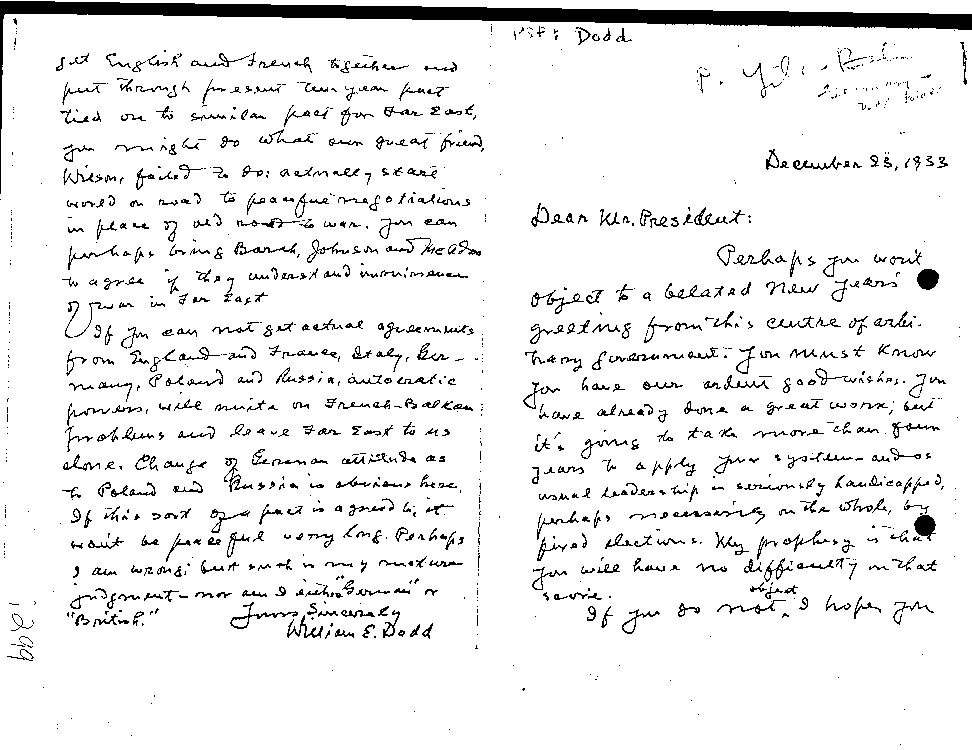 PSF: Dodd
P. File - Berlin
December 23, 1933
Dear Mr. President:
Perhaps you won't
object to a belated New Years
greeting from this centre of arbi-
trary government. You must know
you have our ardent good wishes. You
have already done a great work; but
it's going to take more than four
years to apply your system - and as
usual leadership is seriously handicapped,
perhaps necessarily on the whole, by
fixed elections. My prophesy is that
you will have no difficulty on that
score.
If you do not object, I hope you
get English and French together and
put through present ten year pact
tied on to similar pact for Far East,
you might do what our great friend,
Wilson, failed to do: actually start
world on road to peaceful negotiations
in place of old road to war. You can
perhaps bring Borah, Johnson and McAdoo
to agree if they understand imminence
of war in Far East
If you can not get actual agreements
from England and France, Italy, Ger-
many, Poland and Russia, autocratic
powers, will unite on French-Balkan
problems and leave Far East to us
alone. Change of German attitude as
to Poland and Russia is obvious here.
If this sort of a pact is agreed to, it
won't be peaceful very long. Perhaps
I am wrong; but such is my mature
judgment - nor am I either "German" or
"British."
Yours Sincerely
William E. Dodd
299